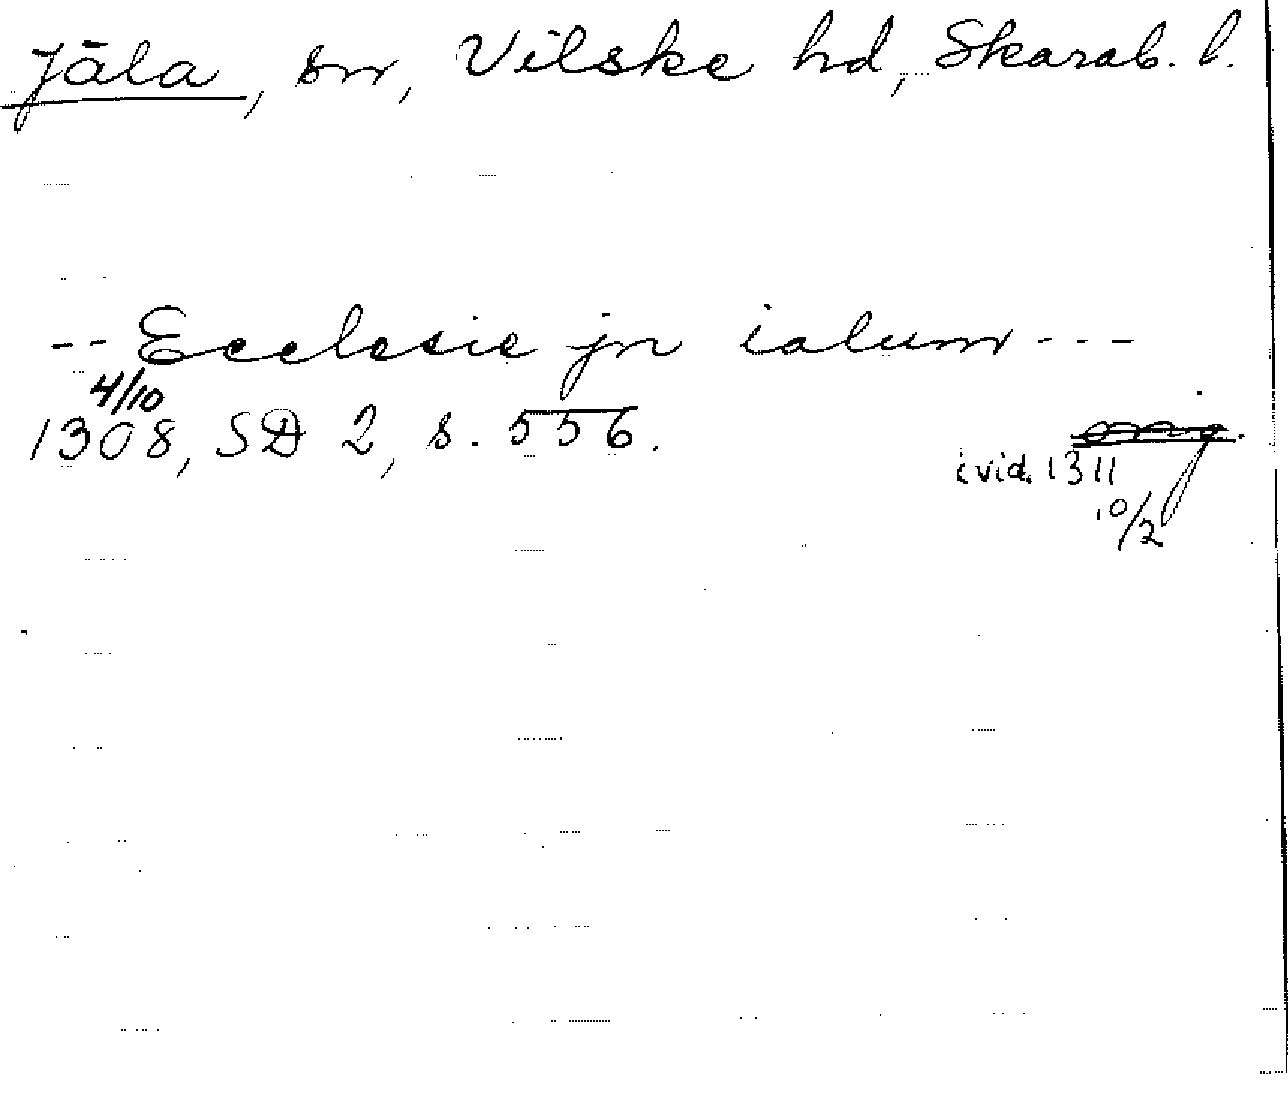 Jäla, sn, Vilske hd, Skarab. l.
-- Ecclesie jn ialum ---
4/10
1308, SD 2, s. 556.
i vid. 1311
10/2